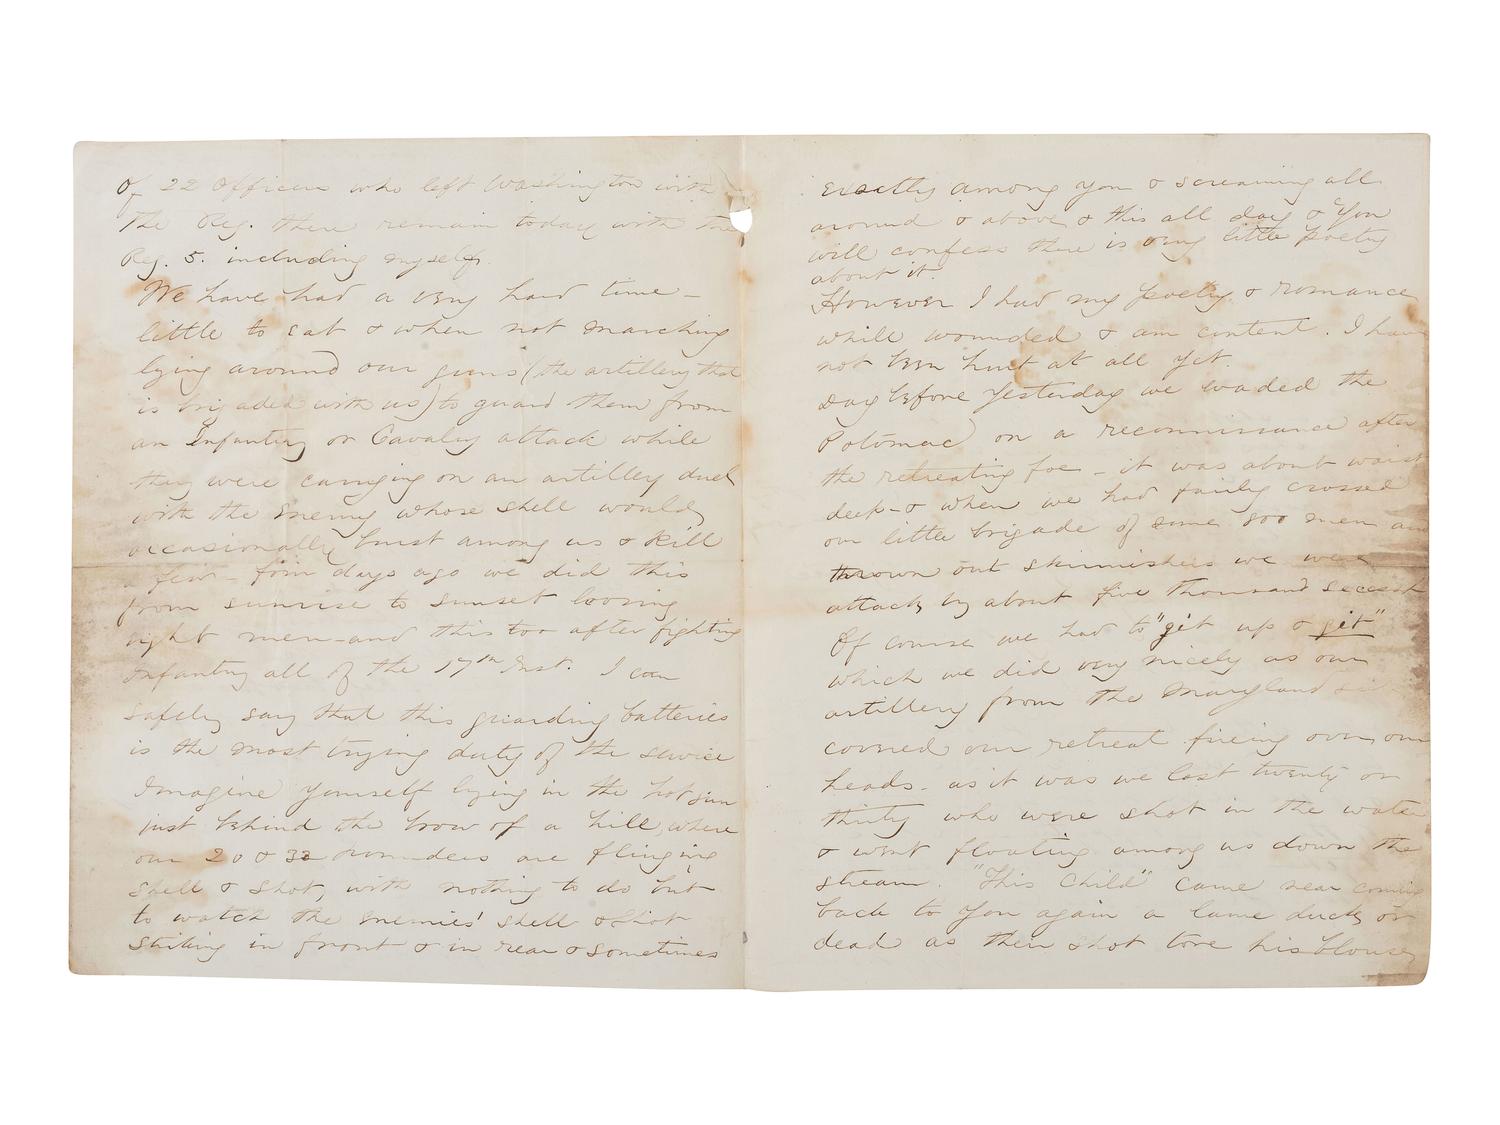 Of 22 Officers who left Washington with
the Reg. there remain today with the
Reg. 5. including myself.
We have had a very hard time -
little to eat & when not marching
lying around our guns (the artillery that
is brigaded with us) to guard them from
an Infantry or Cavalry attack while
they were carrying on an artillery duel
with the enemy whose shell would
occasionally burst among us & kill
a few - four days ago we did this
from sunrise to sunset loosing
eight men - and this too after fighting
Infantry all of the 17th Inst. I can
safely say that this guarding batteries
is the most trying duty of the service
Imagine yourself lying in the hot sun
just behind the brow of a hill, where
our 20 & 32 pounders are flinging
shell & shot, with nothing to do but
to watch the enemies' shell & shot
striking in front & in rear & sometimes
exactly among you & screaming all
around & above & this all day & you
will confess there is very little poetry
about it.
However I had my poetry & romance
while wounded & am content. I have
not been hurt at all yet.
Day before yesterday we waded the
Potomac on a reconnissance after
the retreating foe - it was about waist
deep - & when we had fairly crossed
our little brigade of some 800 men and
thrown out skirmishers we were
attack by about five thousand secesh
Of course we had to "git up & git"
which we did very nicely as our
artillery from the Maryland side
covered our retreat fireing over our
heads - as it was we lost twenty or
thirty who were shot in the water
& went floating among us down the
stream. "This Child" came near coming
back to you again a lame duck or
dead as their shot tore his blouse